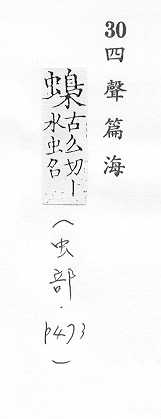 30四聲篇海
蟂古么切丨
水虫名
(虫部．p473)